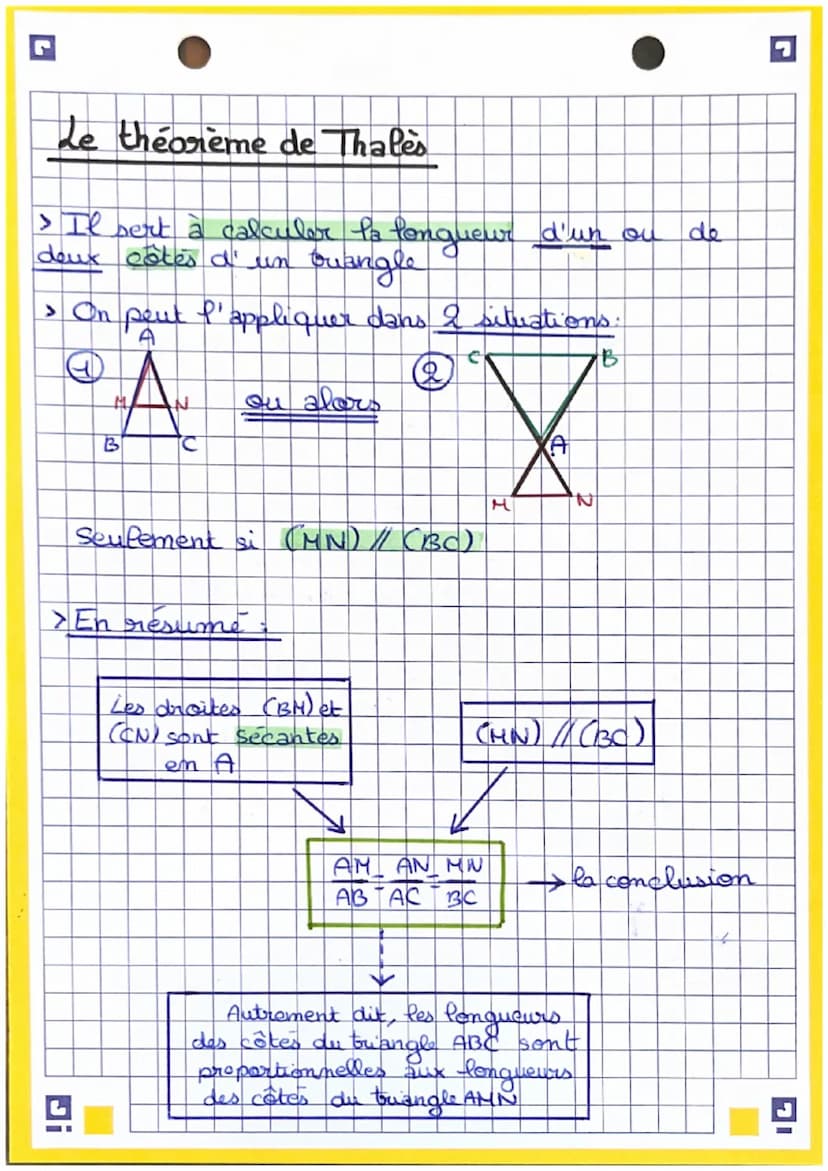 Le théorème de Thalès
> Il sert à calculer la longueur d'un ou de
deux côtés d'un triangle
> On peut l'appliquer dans 2 situations:
A
1
M N
B C
ou alors
2
C B
A
M N
Seulement si (MN) // (BC)
> En résumé :
Les droites (BM) et
(CN) sont sécantes
en A
(MN) // (BC)
AM = AN = MN
AB AC BC
→ la conclusion
Autrement dit, les longueurs
des côtés du triangle ABC sont
proportionnelles aux longueurs
des côtés du triangle AMN